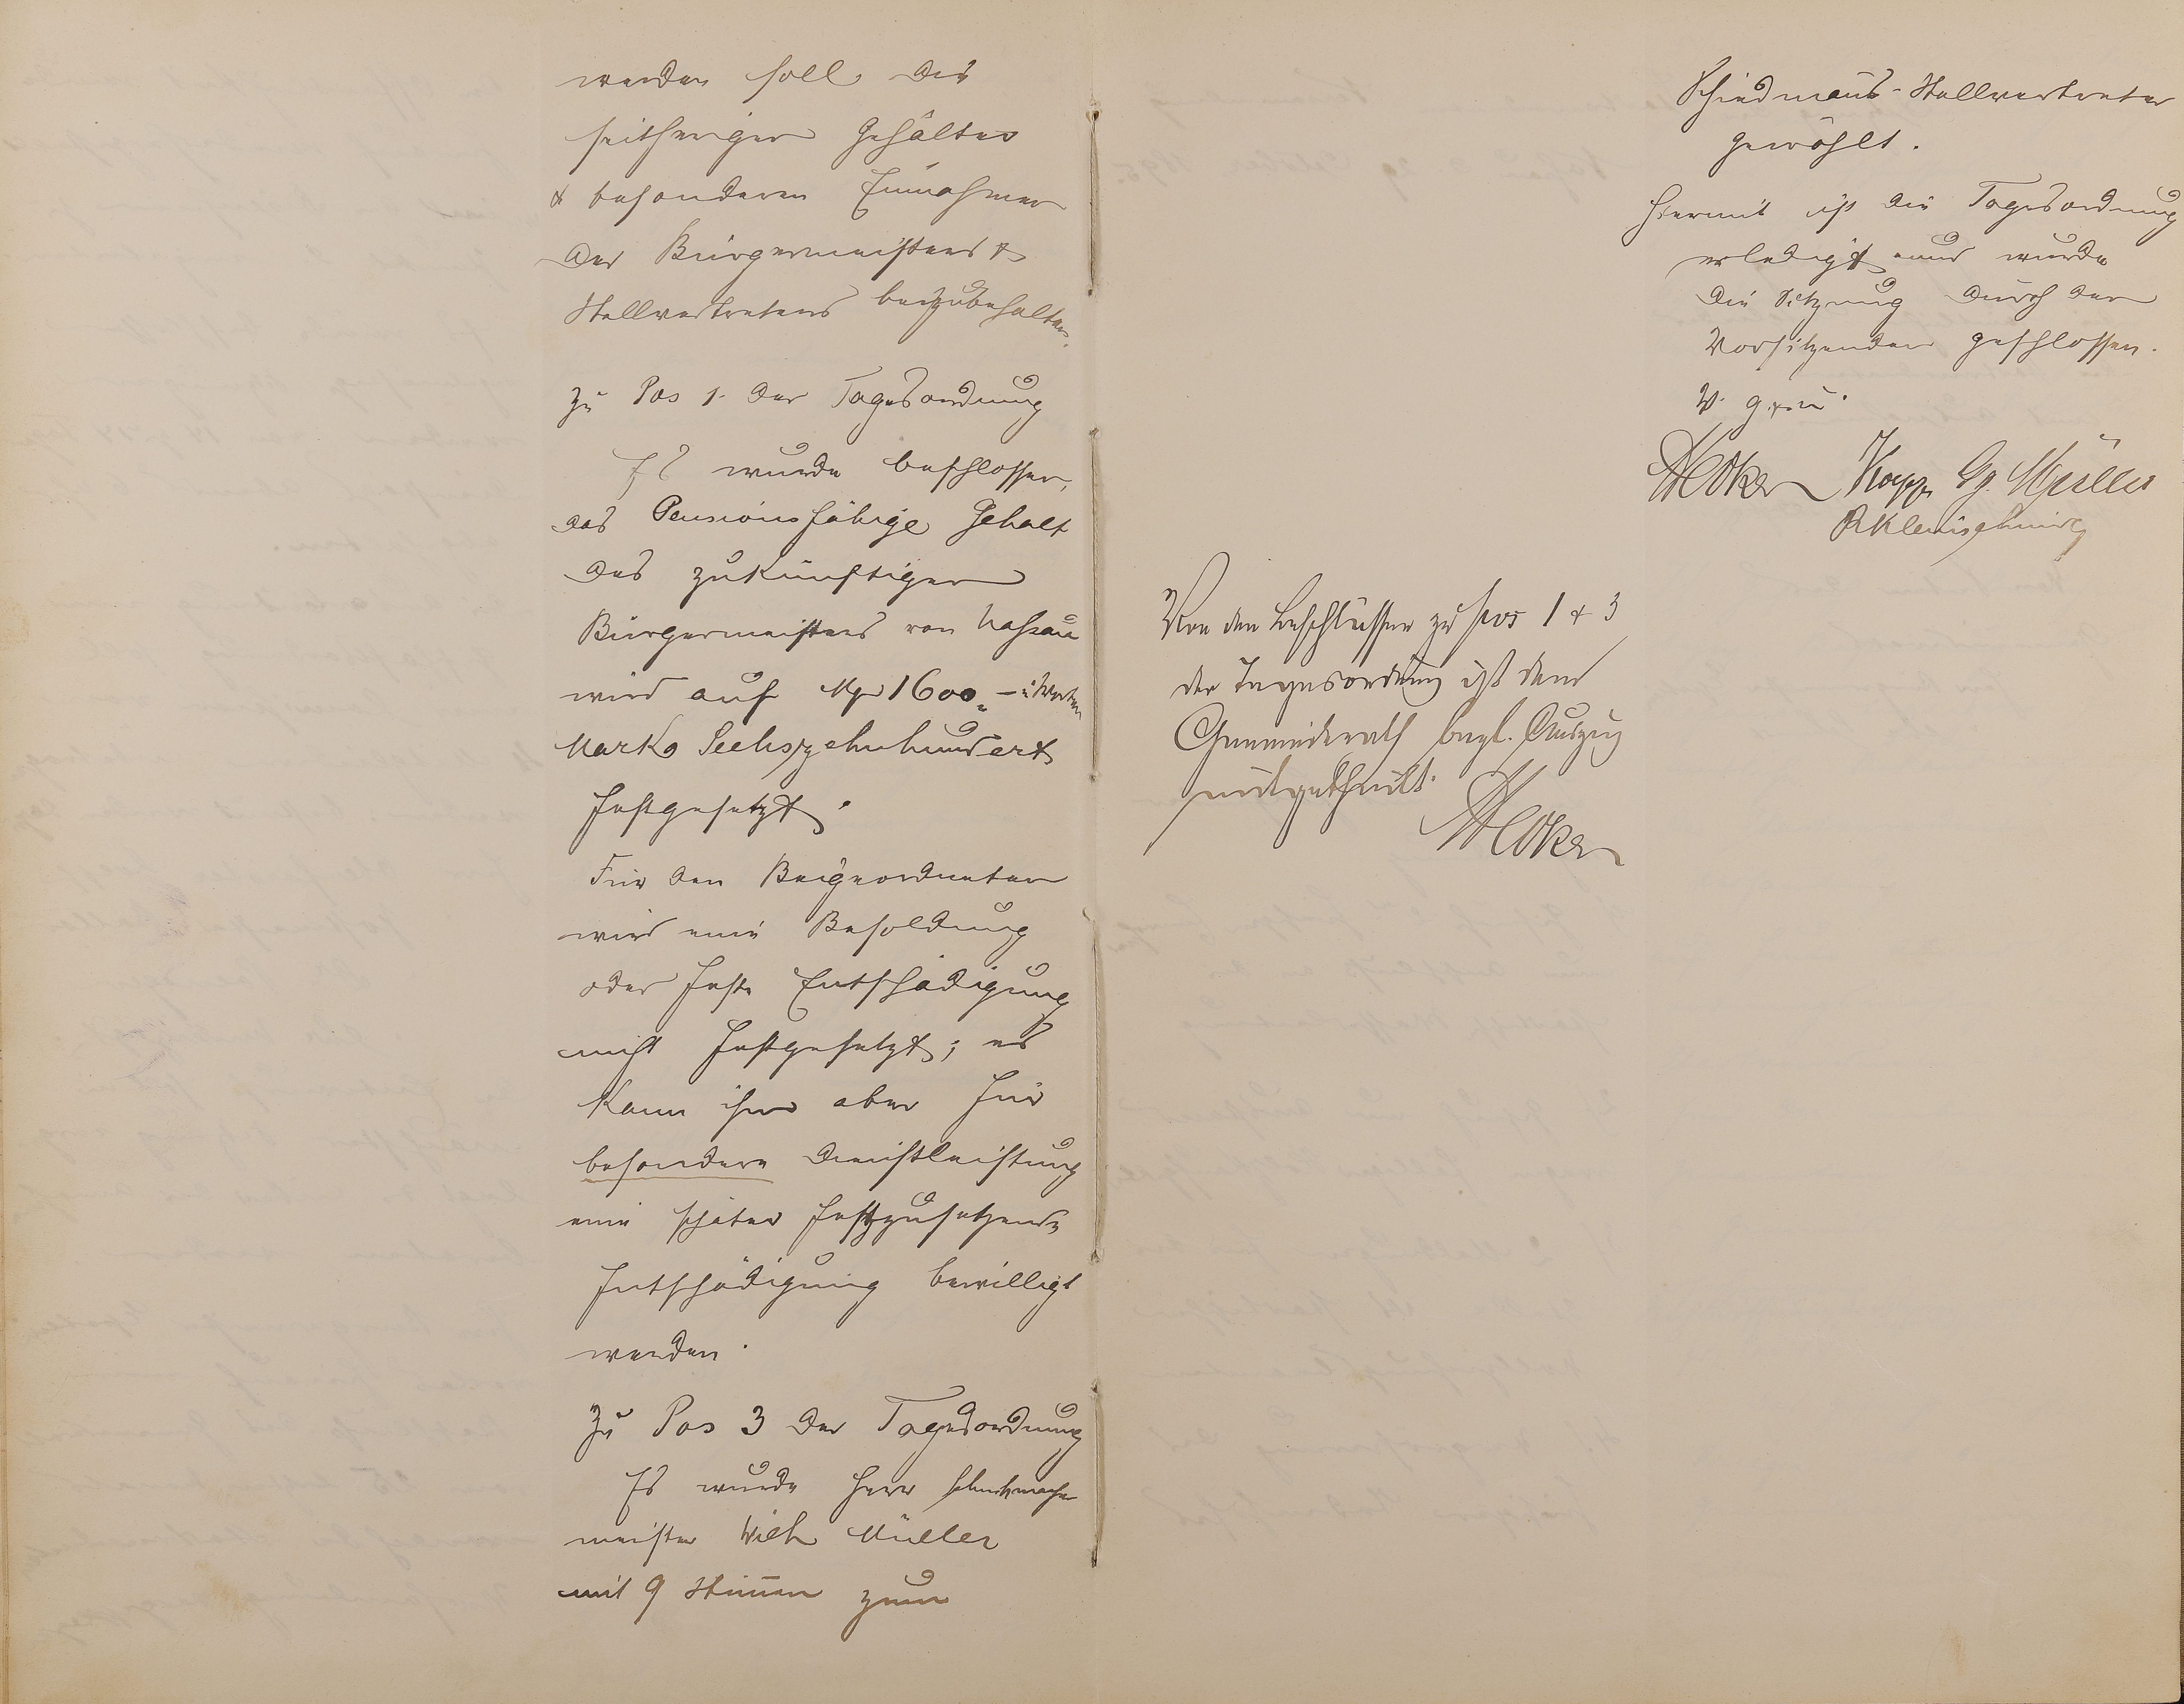 werden soll die
seitherigen Gehälter
& besonderen Einnahmen
des Bürgermeisters &
Stellvertreters beizubehalten.
Zu Pos 1. der Tagesordnung
Es wurde beschlossen,
das Pensionsfähige Gehalt
des zukünftigen
Bürgermeisters von Nassau
wird auf Mk 1600 – i Worten
Mark Sechszehnhundert
festgesetzt.
Für den Beigeordneten
wird eine Besoldung
oder feste Entschädigung
nicht festgesetzt; es
kann ihm aber für
besondere Dienstleistung
eine später festzusetzende
Entschädigung bewilligt
werden.
Zu Pos 3 der Tagesordnung
Es wurde Herr Schuhmacher
meister Wilh Müller
mit 9 Stimmen zum
Schiedmans-Stellvertreter
gewählt.
Hiermit ist die Tagesordnung
erledigt und wurde
die Sitzung durch den
Vorsitzenden geschlossen.
V. g. u.
Kopp Gg. Müller
Von den Beschlüssen zu pos 1 & 3
der Tagesordnung ist dem
Gemeinderath begl. Auszug
mitgetheilt.